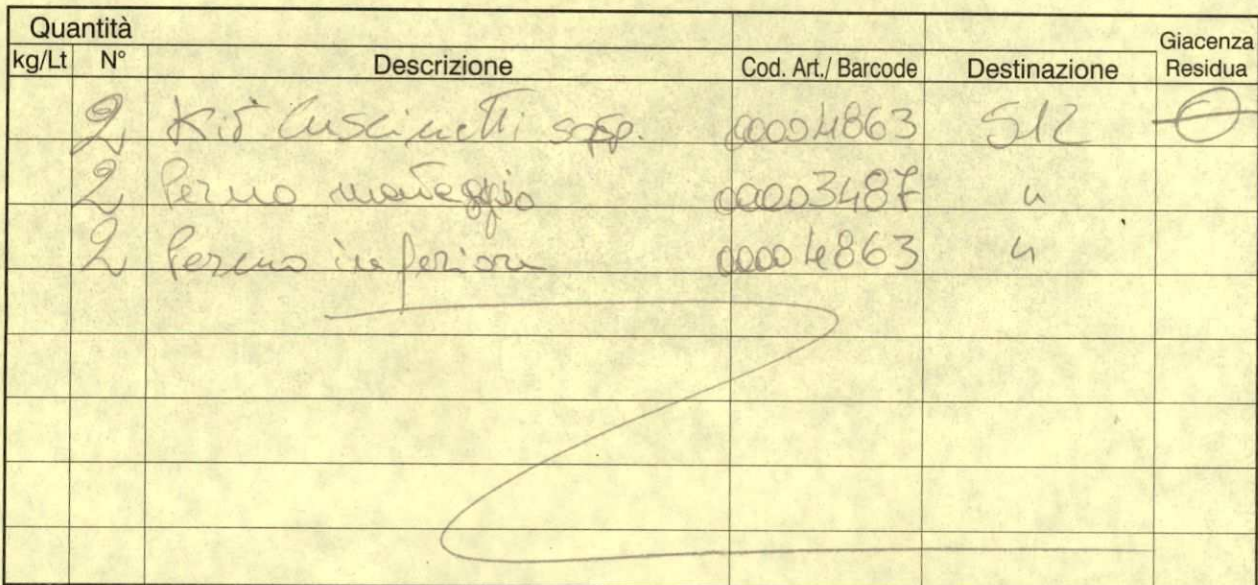 Quantità
kg/Lt N° Descrizione Cod. Art./ Barcode Destinazione Giacenza Residua
2 Kit Cuscinetti sosp. 00004863 512 0
2 Perno montaggio 00003487 "
2 Perno inferiore 00004863 "